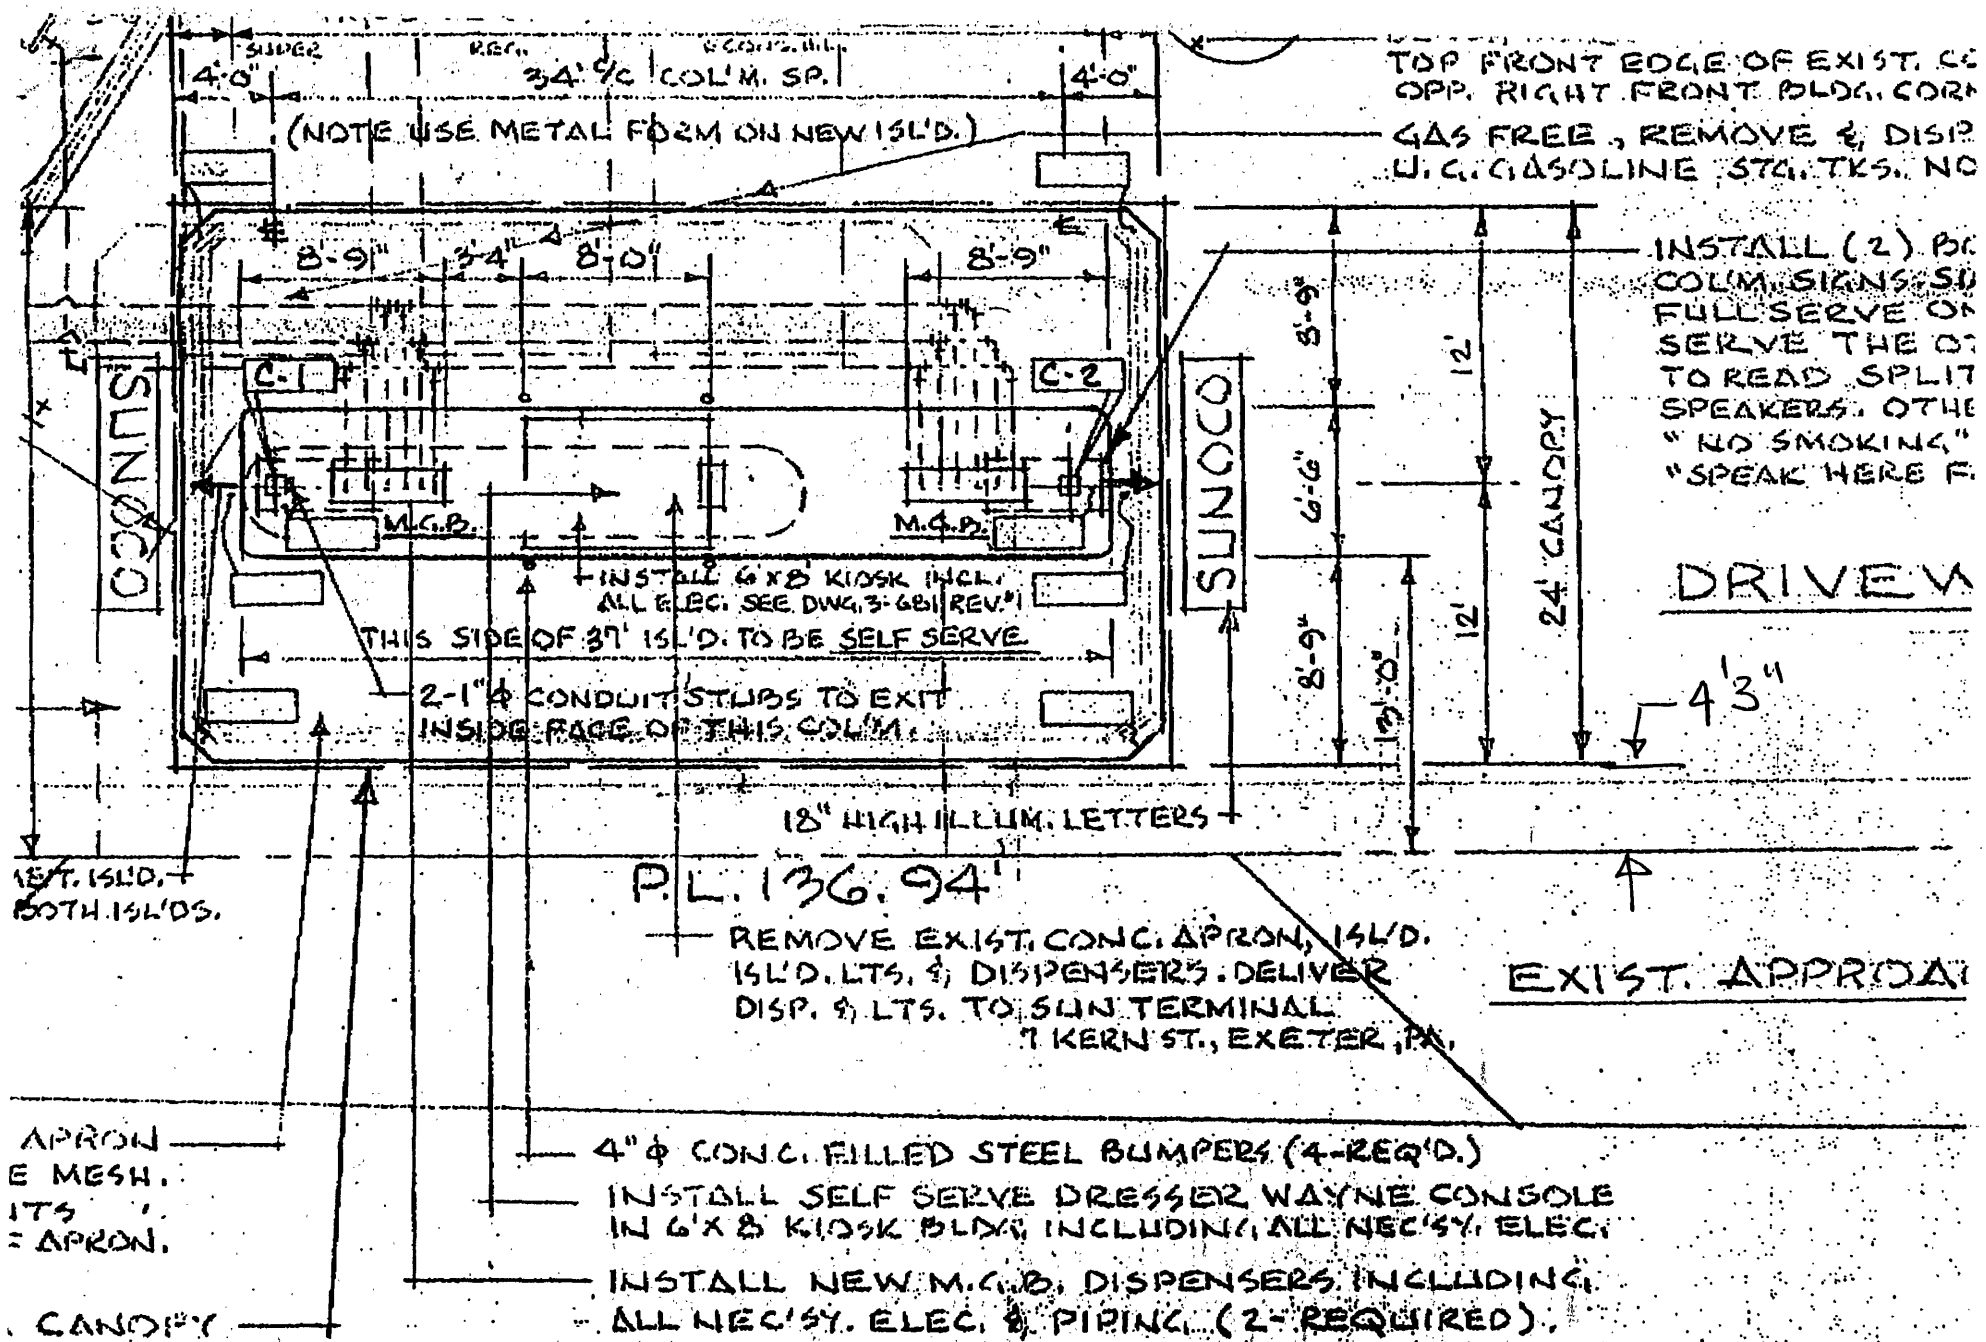 SUPER REG.
4'-0" 34' C/C COL'M. SP. 4'-0"
(NOTE USE METAL FORM ON NEW ISL'D.)
TOP FRONT EDGE OF EXIST.
OPP. RIGHT FRONT BLDG.
GAS FREE, REMOVE &
U.G. GASOLINE STG. TKS.
8'-9" 3'-4" 8'-0" 8'-9"
INSTALL (2)
COL'M. SIGNS
FULL SERVE
SERVE THE
TO READ SPLIT
SPEAKERS.
"NO SMOKING"
"SPEAK HERE
C-1 C-2
SUNOCO
SUNOCO
8'-9"
6'-6"
8'-9"
13'-0"
12'
12'
24' CANOPY
M.G.B. M.G.B.
INSTALL 6'X8' KIOSK INCL.
ALL ELEC. SEE DWG. 3-681 REV. #1
THIS SIDE OF 37' ISL'D. TO BE SELF SERVE
2-1"ϕ CONDUIT STUBS TO EXIT
INSIDE FACE OF THIS COL'M.
4'3"
18" HIGH ILLUM. LETTERS
P.L. 136.94'
ISL'D.
BOTH ISL'DS.
REMOVE EXIST. CONC. APRON, ISL'D.
ISL'D. LTS. & DISPENSERS. DELIVER
DISP. & LTS. TO SUN TERMINAL
7 KERN ST., EXETER, PA.
EXIST.
APRON
MESH.
APRON.
CANOPY
4"ϕ CONC. FILLED STEEL BUMPERS (4-REQ'D.)
INSTALL SELF SERVE DRESSER WAYNE CONSOLE
IN 6'X8' KIOSK BLDG. INCLUDING ALL NEC'SY. ELEC.
INSTALL NEW M.G.B. DISPENSERS INCLUDING
ALL NEC'SY. ELEC. & PIPING (2-REQUIRED).